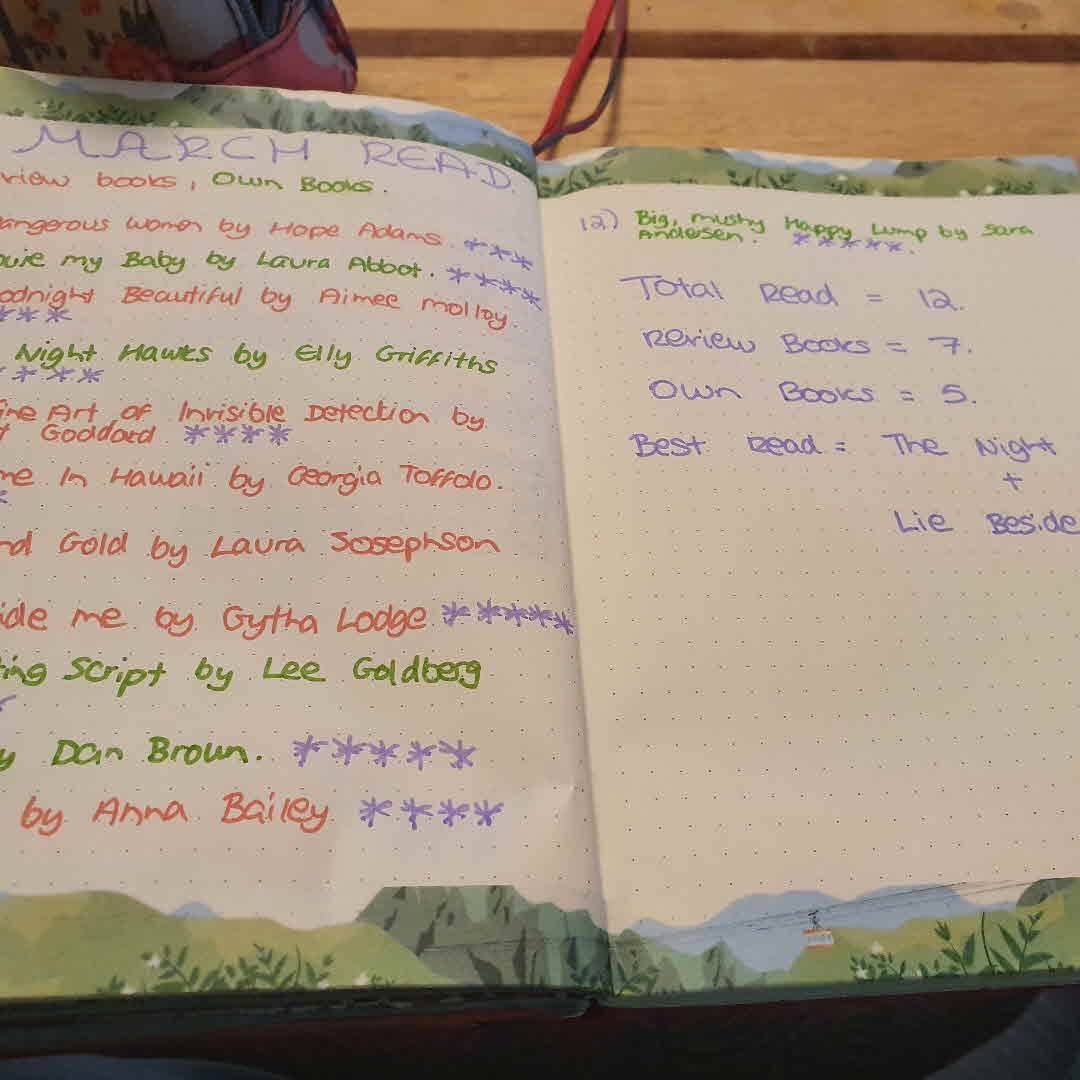 MARCH READ.
view books, Own Books.
angerous women by Hope Adams. ***
my Baby by Laura Abbot. ****
odnight Beautiful by Aimee Molloy.
***
Night Hawks by Elly Griffiths
****
ine Art of Invisible Detection by
Goddard ****
me In Hawaii by Georgia Toffolo.
nd Gold by Laura Sosephson
ide me by Gytha Lodge *****
ting Script by Lee Goldberg
y Dan Brown. *****
by Anna Bailey ****
12) Big, mushy Happy Lump by Sara
Andersen. *****.
Total Read = 12.
Review Books = 7.
Own Books = 5.
Best Read = The Night
+
Lie Beside